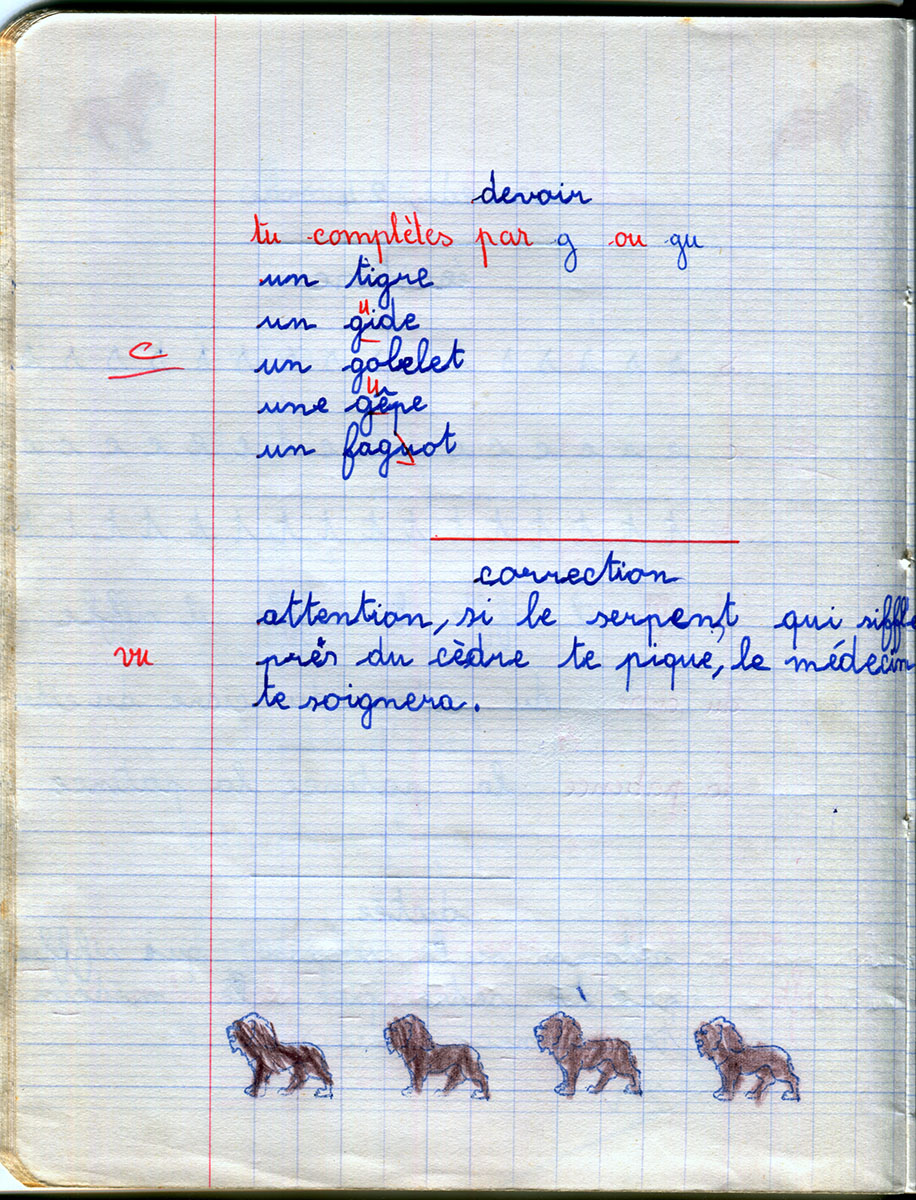 devoir
tu complètes par g ou gu
un tigre
u
un gide
c
un gobelet
u
une gêpe
un faguot
correction
attention, si le serpent qui siffle
vu
près du cèdre te pique, le médecin
te soignera.